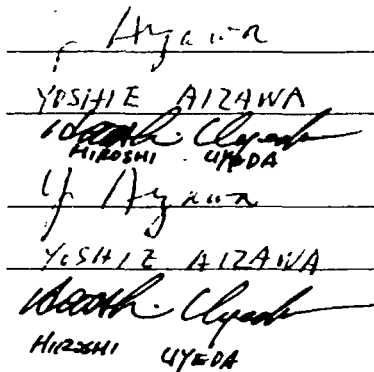 Y. Aizawa
YOSHIE AIZAWA
Hiroshi Uyeda
HIROSHI UYEDA
Y. Aizawa
YOSHIE AIZAWA
Hiroshi Uyeda
HIROSHI UYEDA